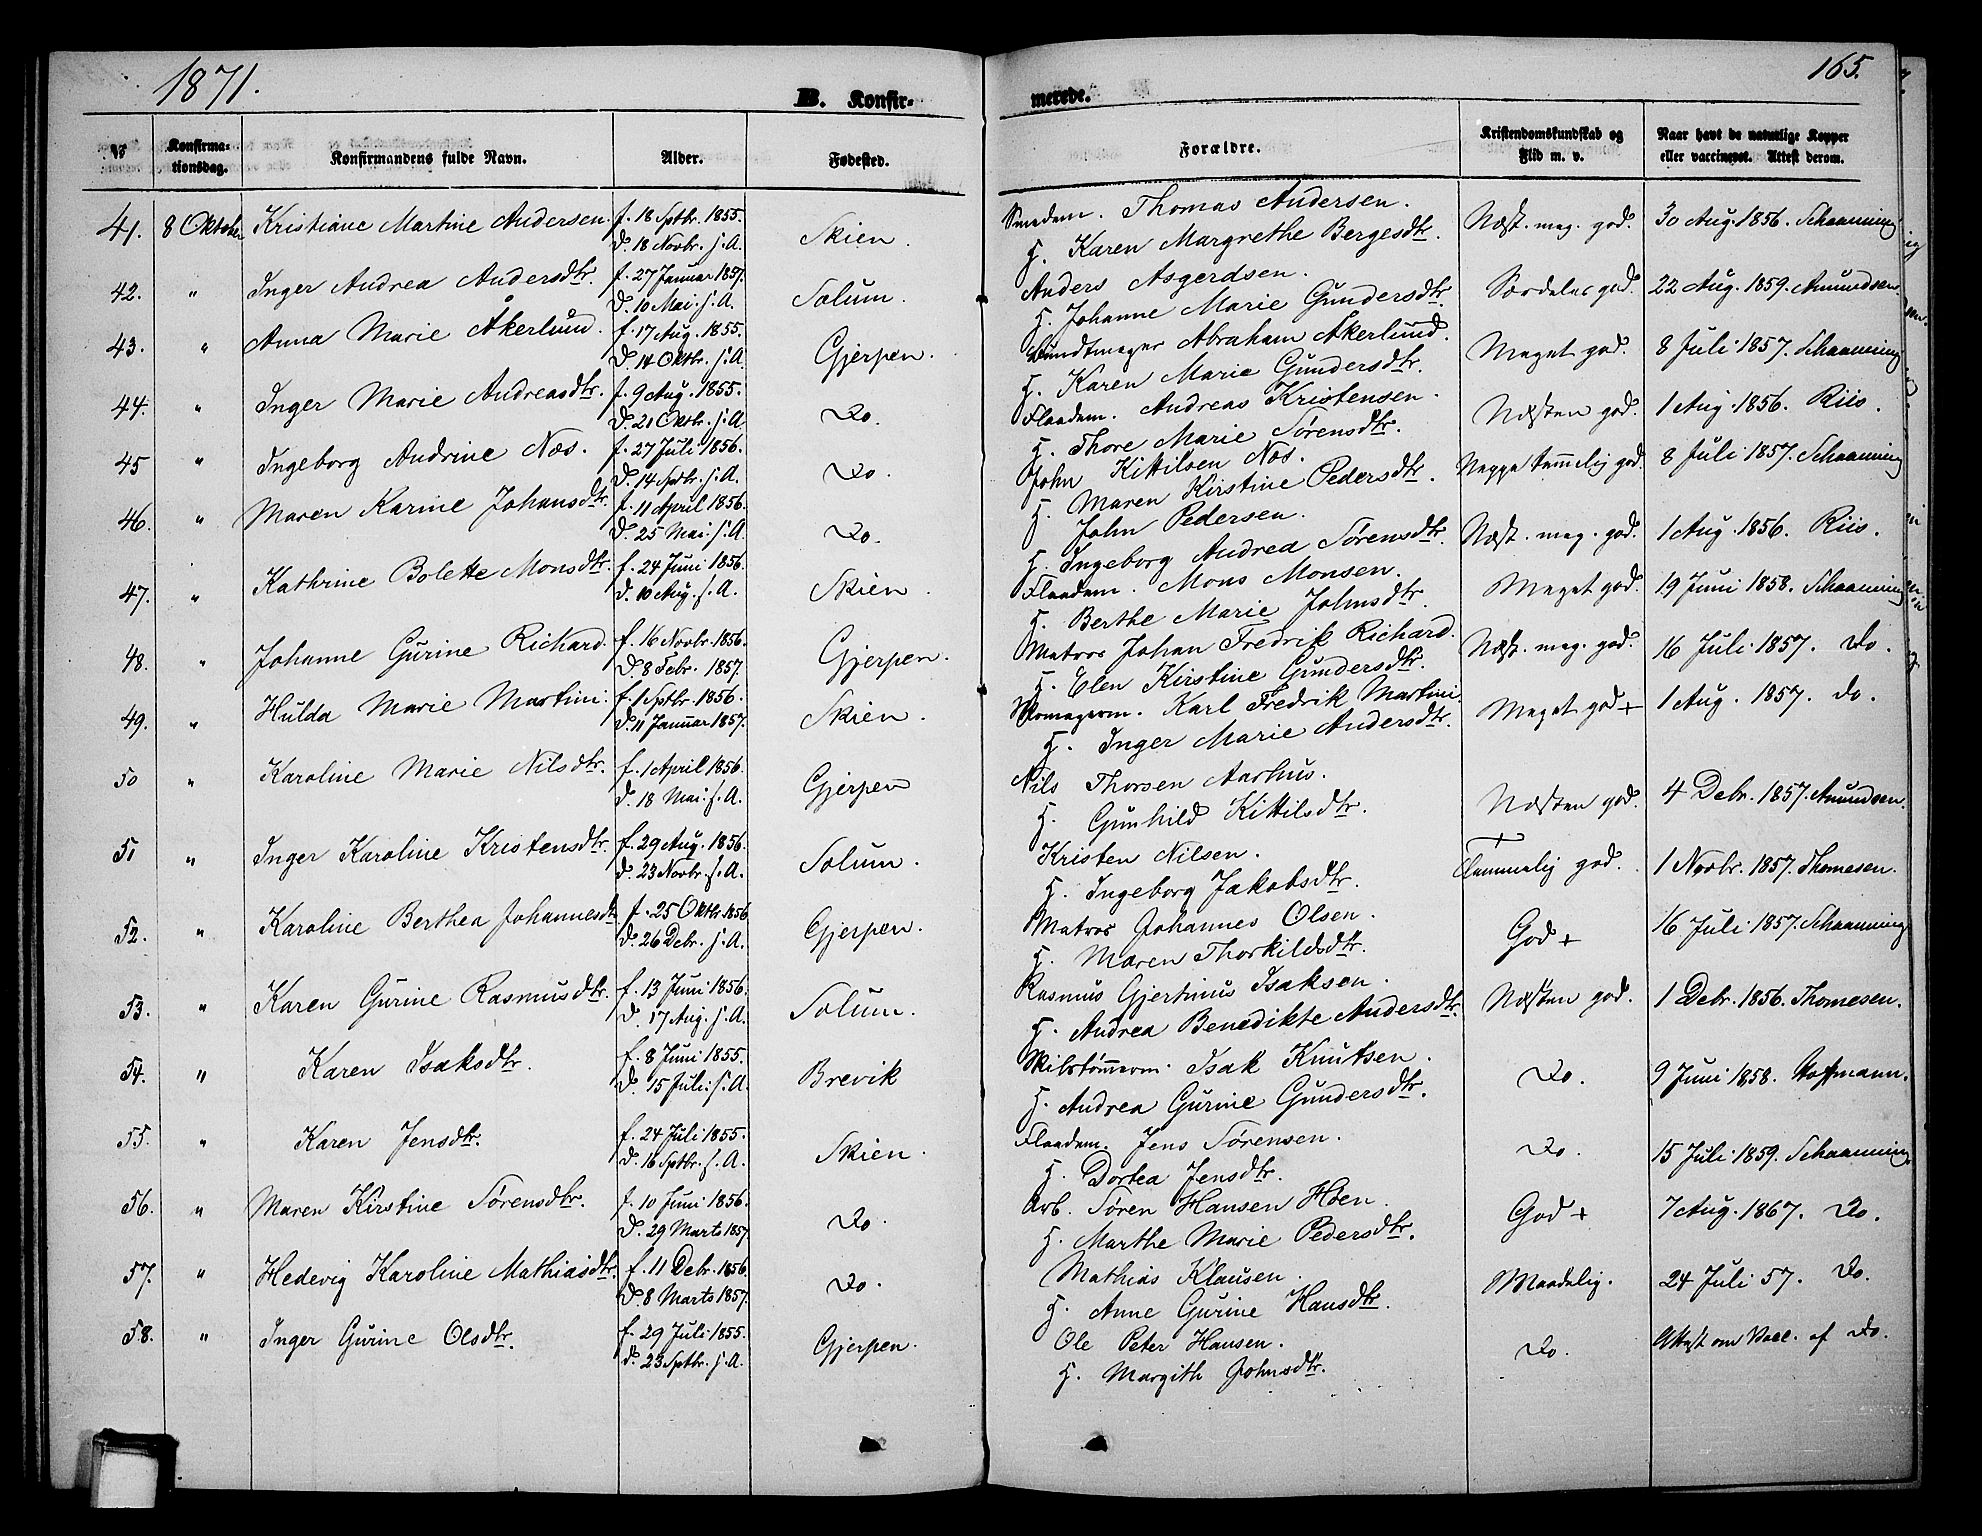 1871.
B. Konfir-
merede.
165.
№
Konfirma-
tionsdag.
Konfirmandens fulde Navn.
Alder.
Fødested.
Forældre.
Kristendomskundskab og
Flid m. v.
Naar havt de naturlige Kopper
eller vaccineret. Attest derom.
41. 8 Oktober Kristiane Martine Andersen. f. 18 Sptbr. 1855. Skien. Smedem. Thomas Andersen. Næst. meg. god. 30 Aug. 1856. Schaanning
D. 18 Novbr. s. A. H. Karen Margrethe Bergesdtr.
42. " Inger Andrea Andersdtr. f. 27 Januar 1857. Solum. Anders Asgerdsen. Særdeles god. 22 Aug. 1859. Amundsen.
D. 10 Mai. s. A. H. Johanne Marie Gundersdtr.
43. " Anna Marie Åkerlund. f. 17 Aug. 1855. Gjerpen. Bundtmager Abraham Åkerlund. Meget god. 8 Juli 1857. Schaanning
D. 14 Oktbr. s. A. H. Karen Marie Gundersdtr.
44. " Inger Marie Andreasdtr. f. 9 Aug. 1855. Do. Flaadem. Andreas Kristensen. Næsten god. 1 Aug. 1856. Riis.
D. 21 Oktbr. s. A. H. Thore Marie Sørensdtr.
45 " Ingeborg Andrine Næs. f. 27 Juli 1856. Do. John Kittilsen Næs. Neppe temmelig god. 8 Juli 1857. Schaanning
D. 14 Sptbr. s. A. H. Maren Kirstine Pedersdtr.
46. " Maren Karine Johansdtr. f. 11 April 1856. Do. John Pedersen. Næst. meg. god. 1 Aug. 1856. Riis.
D. 25 Mai. s. A. H. Ingeborg Andrea Sørensdtr.
47. " Kathrine Bolette Monsdtr. f. 24 Juni 1856. Skien. Flaadem. Mons Monsen. Meget god. 19 Juni 1858. Schaanning
D. 10 Aug. s. A. H. Berthe Marie Johnsdtr.
48. " Johanne Gurine Richard. f. 16 Novbr. 1856. Gjerpen. Matros Johan Fredrik Richard. Næst. meg. god. 16 Juli 1857. Do.
D. 8 Febr. 1857. H. Elen Kirstine Gundersdtr.
49. " Hulda Marie Martini. f. 1 Sptbr. 1856. Skien. Skomagerm. Karl Fredrik Martini. Meget god + 1 Aug. 1857. Do.
D. 11 Januar 1857. H. Inger Marie Andersdtr.
50 " Karoline Marie Nilsdtr. f. 1 April 1856. Gjerpen Nils Thorsen Aarhus. Næsten god. 4 Debr. 1857. Amundsen.
D. 18 Mai. s. A. H. Gunhild Kittilsdtr.
51 " Inger Karoline Kristensdtr. f. 29 Aug. 1856. Solum. Kristen Nilsen. Temmelig god. 1 Novbr. 1857. Thomesen.
D. 23 Novbr. s. A. H. Ingeborg Jakobsdtr.
52. " Karoline Berthea Johannesdtr. f. 25 Oktbr. 1856 Gjerpen. Matros Johannes Olsen. God + 16 Juli 1857. Schaanning
D. 26 Debr. s. A. H. Maren Thorkildsdtr.
53. " Karen Gurine Rasmusdtr. f. 13 Juni 1856. Solum. Rasmus Gjertinus Isaksen. Næsten god. 1 Debr. 1856. Thomesen.
D. 17 Aug. s. A. H. Andrea Benedikte Andersdtr.
54. " Karen Isaksdtr. f. 8 Juni 1855. Brevik Skibstømrm. Isak Knutsen. Do. 9 Juni 1858. Hoffmann.
D. 15 Juli. s. A. H. Andrea Gurine Gundersdtr.
55. " Karen Jensdtr. f. 24 Juli 1855. Skien. Flaadem. Jens Sørensen. Do. 15 Juli 1859. Schaanning
D. 16 Sptbr. s. A. H. Dortea Jensdtr.
56. " Maren Kirstine Sørensdtr. f. 10 Juni 1856. Do. Arb. Søren Hansen Hoen. God + 7 Aug. 1867. Do.
D. 29 Marts 1857. H. Marthe Marie Pedersdtr.
57. " Hedevig Karoline Mathiasdtr. f. 11 Debr. 1856. Do. Mathias Klausen. Maadelig. 24 Juli 57. Do.
D. 8 Marts 1857. H. Anne Gurine Hansdtr.
58. " Inger Gurine Olsdtr. f. 29 Juli 1855. Gjerpen. Ole Peter Hansen. Do. Attest om Vacc. af Do.
D. 23 Sptbr. s. A. H. Margith Johnsdtr.